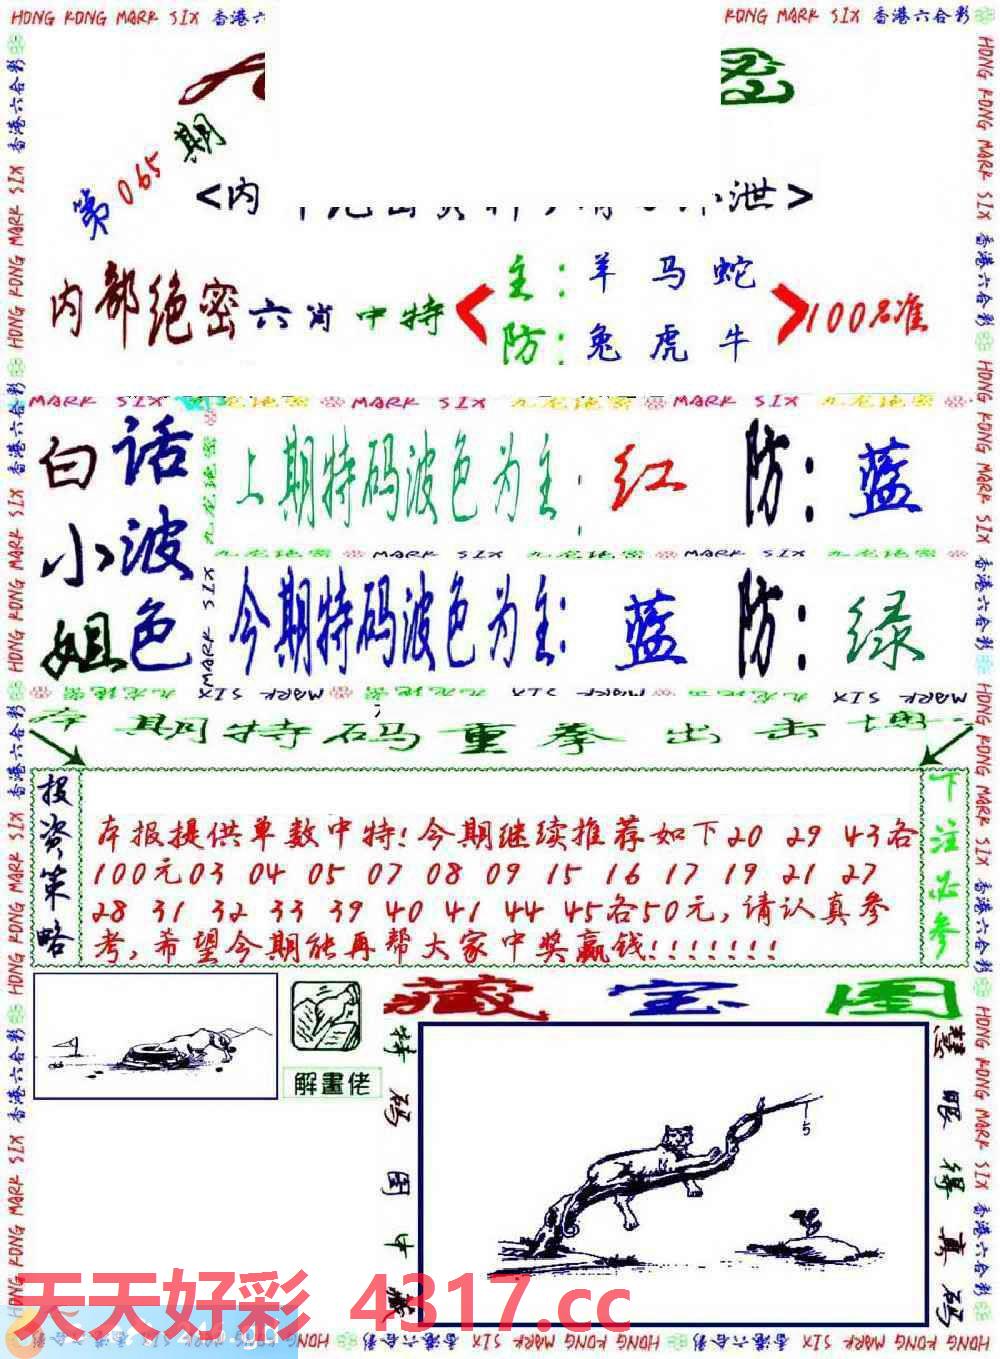 HONG KONG MARK SIX 香港六
KONG MARK SIX 香港六合彩
密
第065期
<内
泄>
内部绝密六肖中特
主：羊 马 蛇
防：兔 虎 牛
100%准
MARK SIX 九龙绝密 MARK SIX 九龙绝密 MARK SIX 九龙绝密
白小姐
话波色
上期特码波色为主：红 防：蓝
九龙绝密 MARK SIX 九龙绝密 MARK SIX 九龙绝密
今期特码波色为主：蓝 防：绿
本期特码重拳出击
投资策略
本报提供单数中特!今期继续推荐如下20 29 43各
100元03 04 05 07 08 09 15 16 17 19 21 27
28 31 32 33 39 40 41 44 45各50元,请认真参
考,希望今期能再帮大家中奖赢钱!!!!!!!
下注必参
藏宝图
解畫佬
特码图中藏
慧眼得真码
5
天天好彩 4317.cc
HONG KONG MARK SIX 香港六合彩